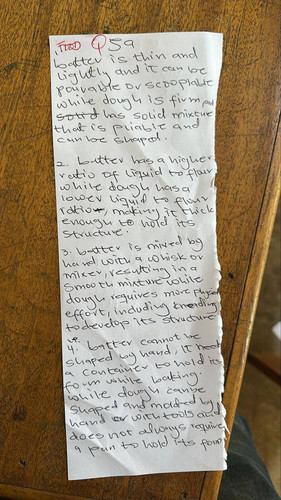 Q5a
batter is thin and
lightly and it can be
pourable or scoopable
while dough is firm and
solid has solid mixture
that is pliable and
can be shaped.
2. batter has a higher
ratio of liquid to flour
while dough has a
lower liquid to flour
ratio, making it thick
enough to hold its
structure.
3. batter is mixed by
hand with a whisk or
mixer, resulting in a
smooth mixture while
dough requires more physical
effort, including kneading
to develop its structure
4. batter cannot be
shaped by hand, it needs
a container to hold its
form while baking.
while dough can be
shaped and molded by
hand or with tools and
does not always require
a pan to hold its form